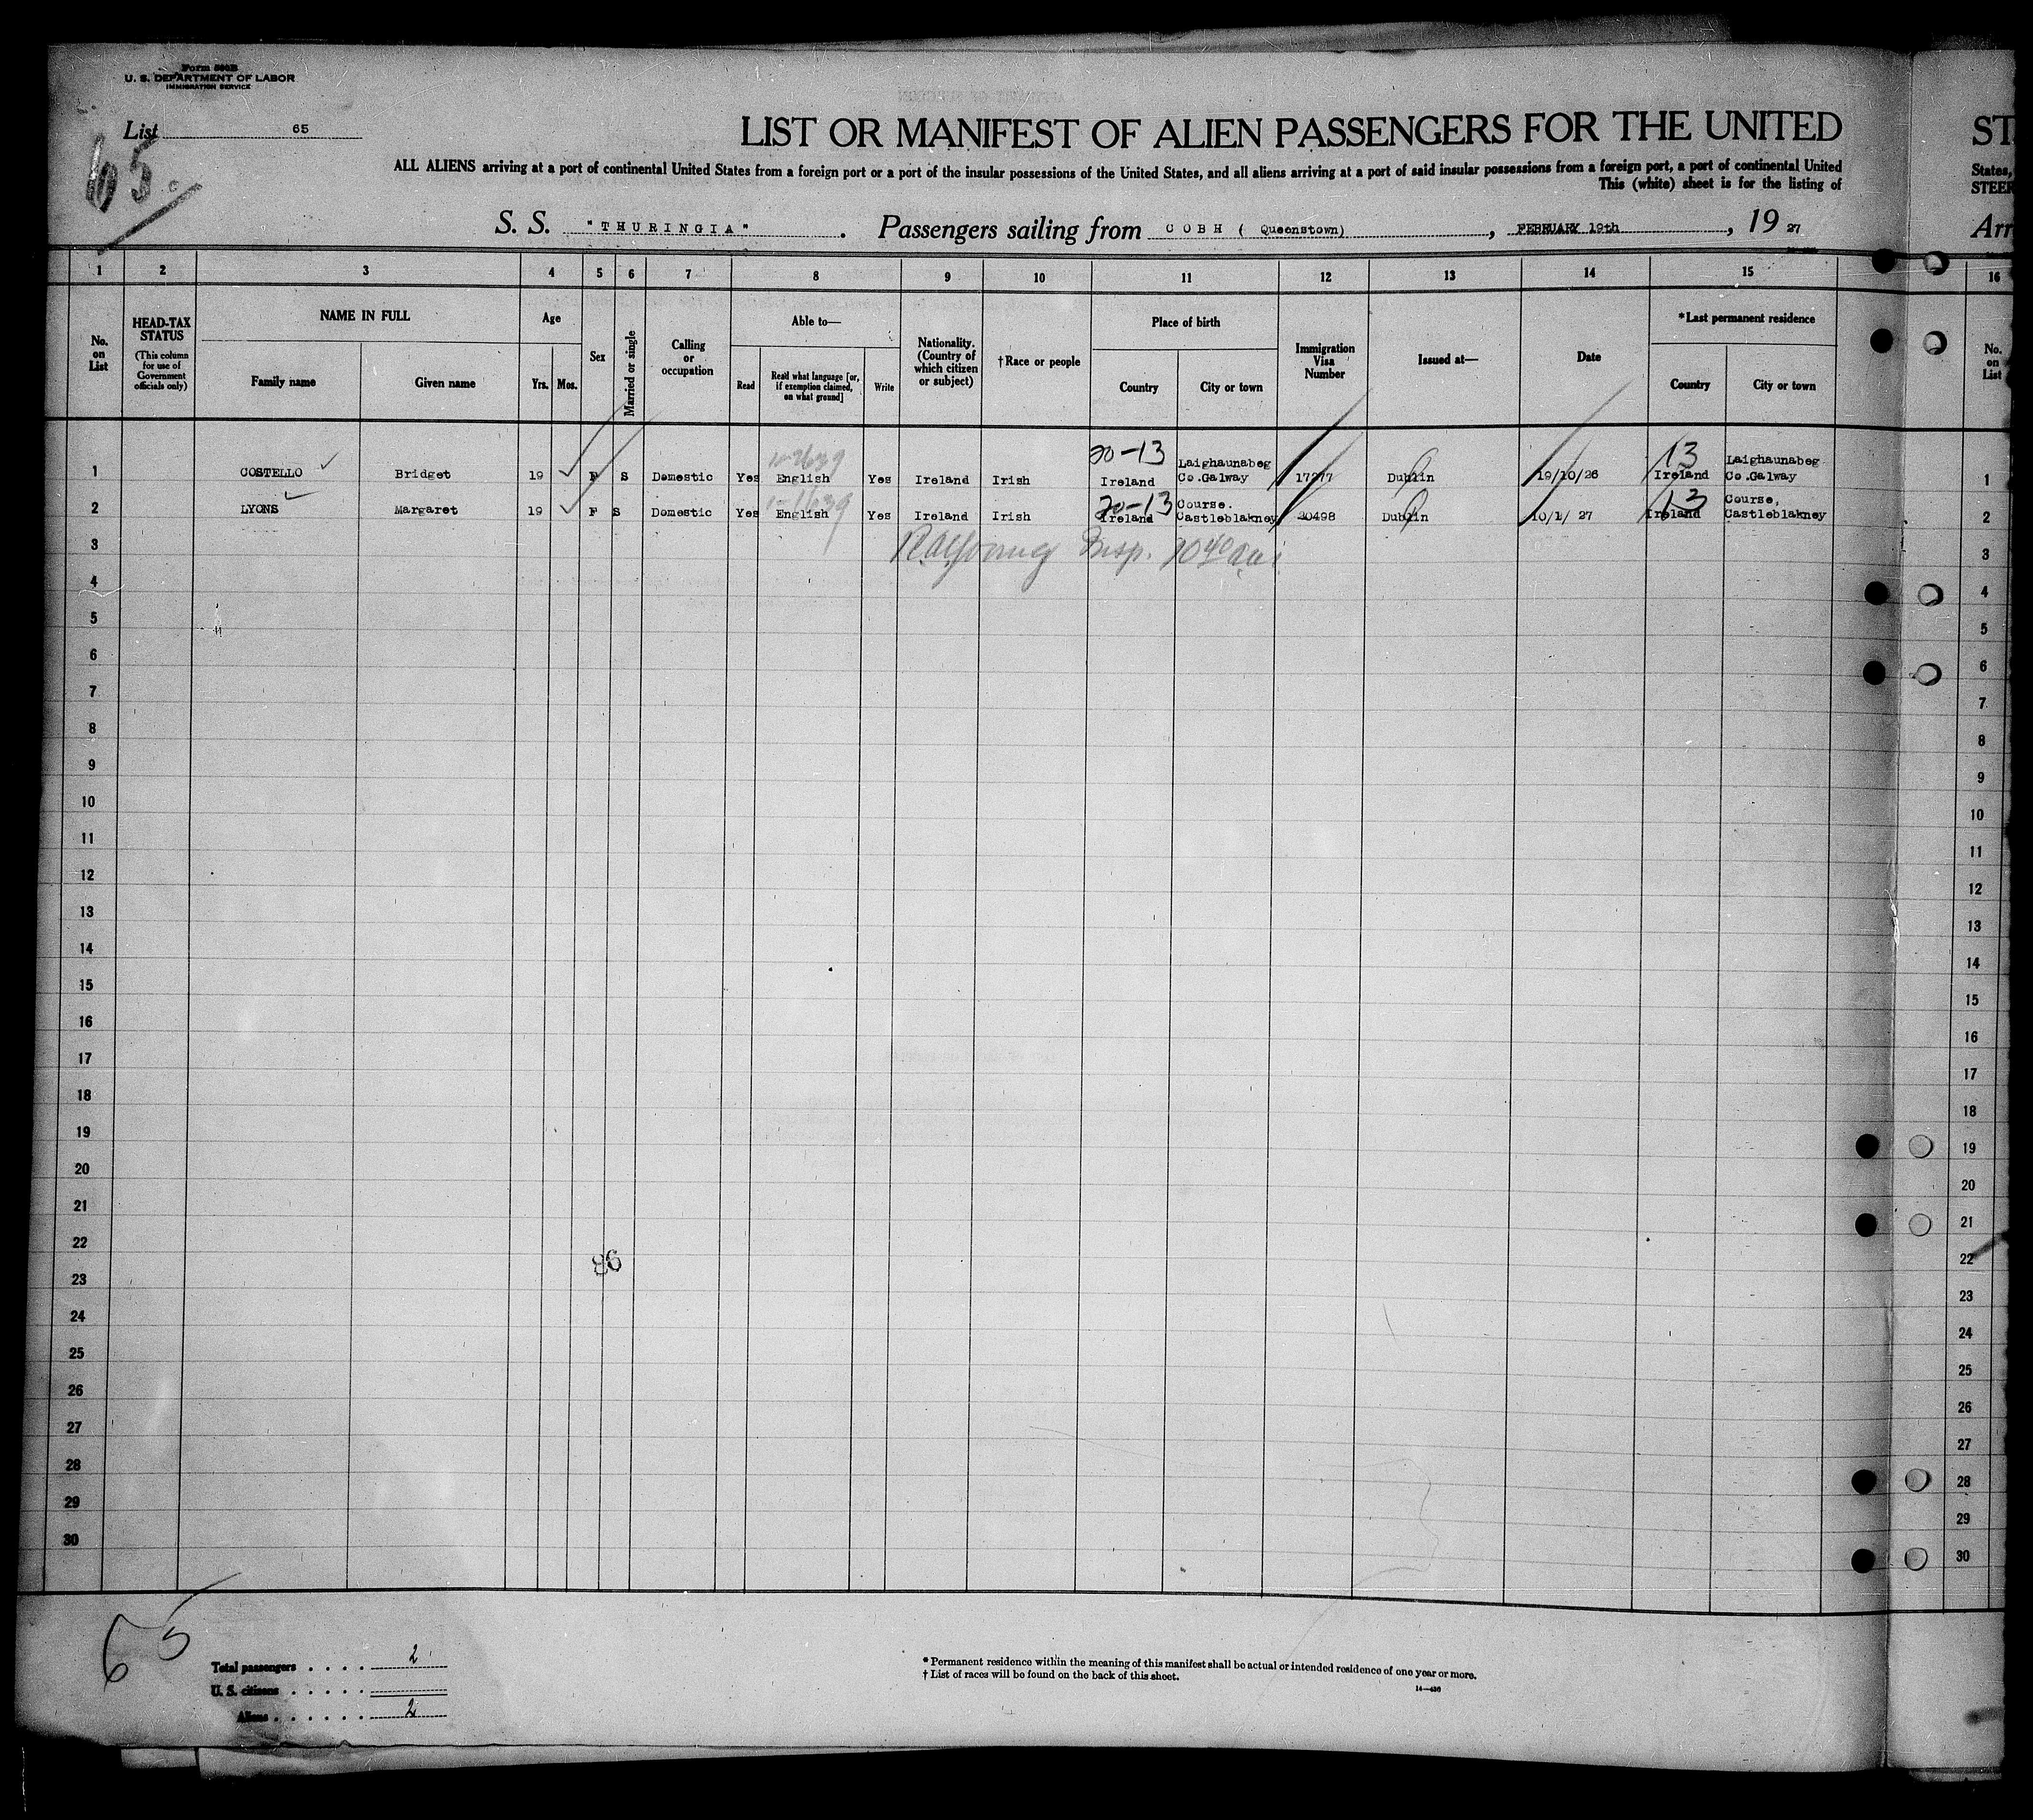 Form 500B
U. S. DEPARTMENT OF LABOR
IMMIGRATION SERVICE
List 65
65
LIST OR MANIFEST OF ALIEN PASSENGERS FOR THE UNITED
ALL ALIENS arriving at a port of continental United States from a foreign port or a port of the insular possessions of the United States, and all aliens arriving at a port of said insular possessions from a foreign port, a port of continental United
This (white) sheet is for the listing of
S. S. "THURINGIA". Passengers sailing from COBH (Queenstown), FEBRUARY 19th, 19 27
ST
States,
STEER
Arr
1 2 3 4 5 6 7 8 9 10 11 12 13 14 15 16
No. on List
HEAD-TAX STATUS (This column for use of Government officials only)
NAME IN FULL
Family name Given name
Age
Yrs. Mos.
Sex
Married or single
Calling or occupation
Able to—
Read
Read what language [or, if exemption claimed, on what ground]
Write
Nationality. (Country of which citizen or subject)
†Race or people
Place of birth
Country City or town
Immigration Visa Number
Issued at—
Date
*Last permanent residence
Country City or town
No. on List
1 COSTELLO Bridget 19 F S Domestic Yes English Yes Ireland Irish 20-13 Ireland Laighaunabeg Co.Galway 17277 Dublin 19/10/26 13 Ireland Laighaunabeg Co.Galway 1
2 LYONS Margaret 19 F S Domestic Yes English Yes Ireland Irish 20-13 Ireland Course. Castleblakney 20498 Dublin 10/1/ 27 13 Ireland Course, Castleblakney 2
3 Insp. 10 40 a.m. 3
4 4
5 5
6 6
7 7
8 8
9 9
10 10
11 11
12 12
13 13
14 14
15 15
16 16
17 17
18 18
19 19
20 20
21 21
22 22
86
23 23
24 24
25 25
26 26
27 27
28 28
29 29
30 30
65
Total passengers . . . . 2
U. S. citizens . . . . .
Aliens . . . . . . 2
* Permanent residence within the meaning of this manifest shall be actual or intended residence of one year or more.
† List of races will be found on the back of this sheet.